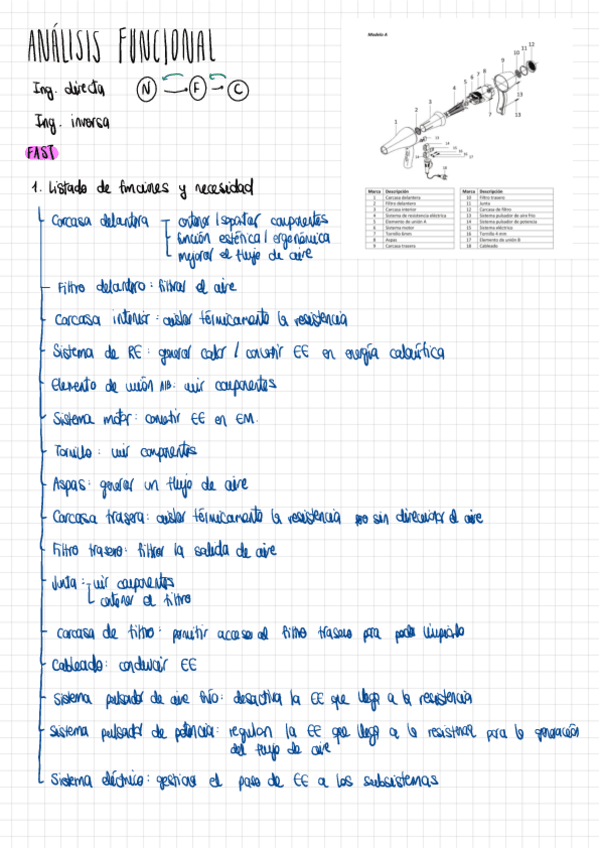 ANÁLISIS FUNCIONAL
Modelo A
Ing. directa N F C
Ing. inversa
FAST
1. Listado de funciones y necesidad
Marca Descripción Marca Descripción
1 Carcasa delantera 10 Filtro trasero
2 Filtro delantero 11 Junta
3 Carcasa interior 12 Carcasa de filtro
4 Sistema de resistencia eléctrica 13 Sistema pulsador de aire frío
5 Elemento de unión A 14 Sistema pulsador de potencia
6 Sistema motor 15 Sistema eléctrico
7 Tornillo 6mm 16 Tornillo 4 mm
8 Aspas 17 Elemento de unión B
9 Carcasa trasera 18 Cableado
Carcasa delantera contener / soportar componentes
función estética / ergonómica
mejorar el flujo de aire
Filtro delantero: filtrar el aire
Carcasa interior: aislar térmicamente la resistencia
Sistema de RE: generar calor / convertir EE en energía calorífica
Elemento de unión A/B: unir componentes
Sistema motor: convertir EE en EM.
Tornillo: unir componentes
Aspas: generar un flujo de aire
Carcasa trasera: aislar térmicamente la resistencia sin direccionar el aire
Filtro trasero: filtrar la salida de aire
Junta: unir componentes
contener el filtro
Carcasa de filtro: permitir acceso al filtro trasero para poder limpiarlo
Cableado: conducir EE
Sistema pulsador de aire frío: desactiva la EE que llega a la resistencia
Sistema pulsador de potencia: regulan la EE que llega a la resistencia para la generación
del flujo de aire
Sistema eléctrico: gestionar el paso de EE a los subsistemas